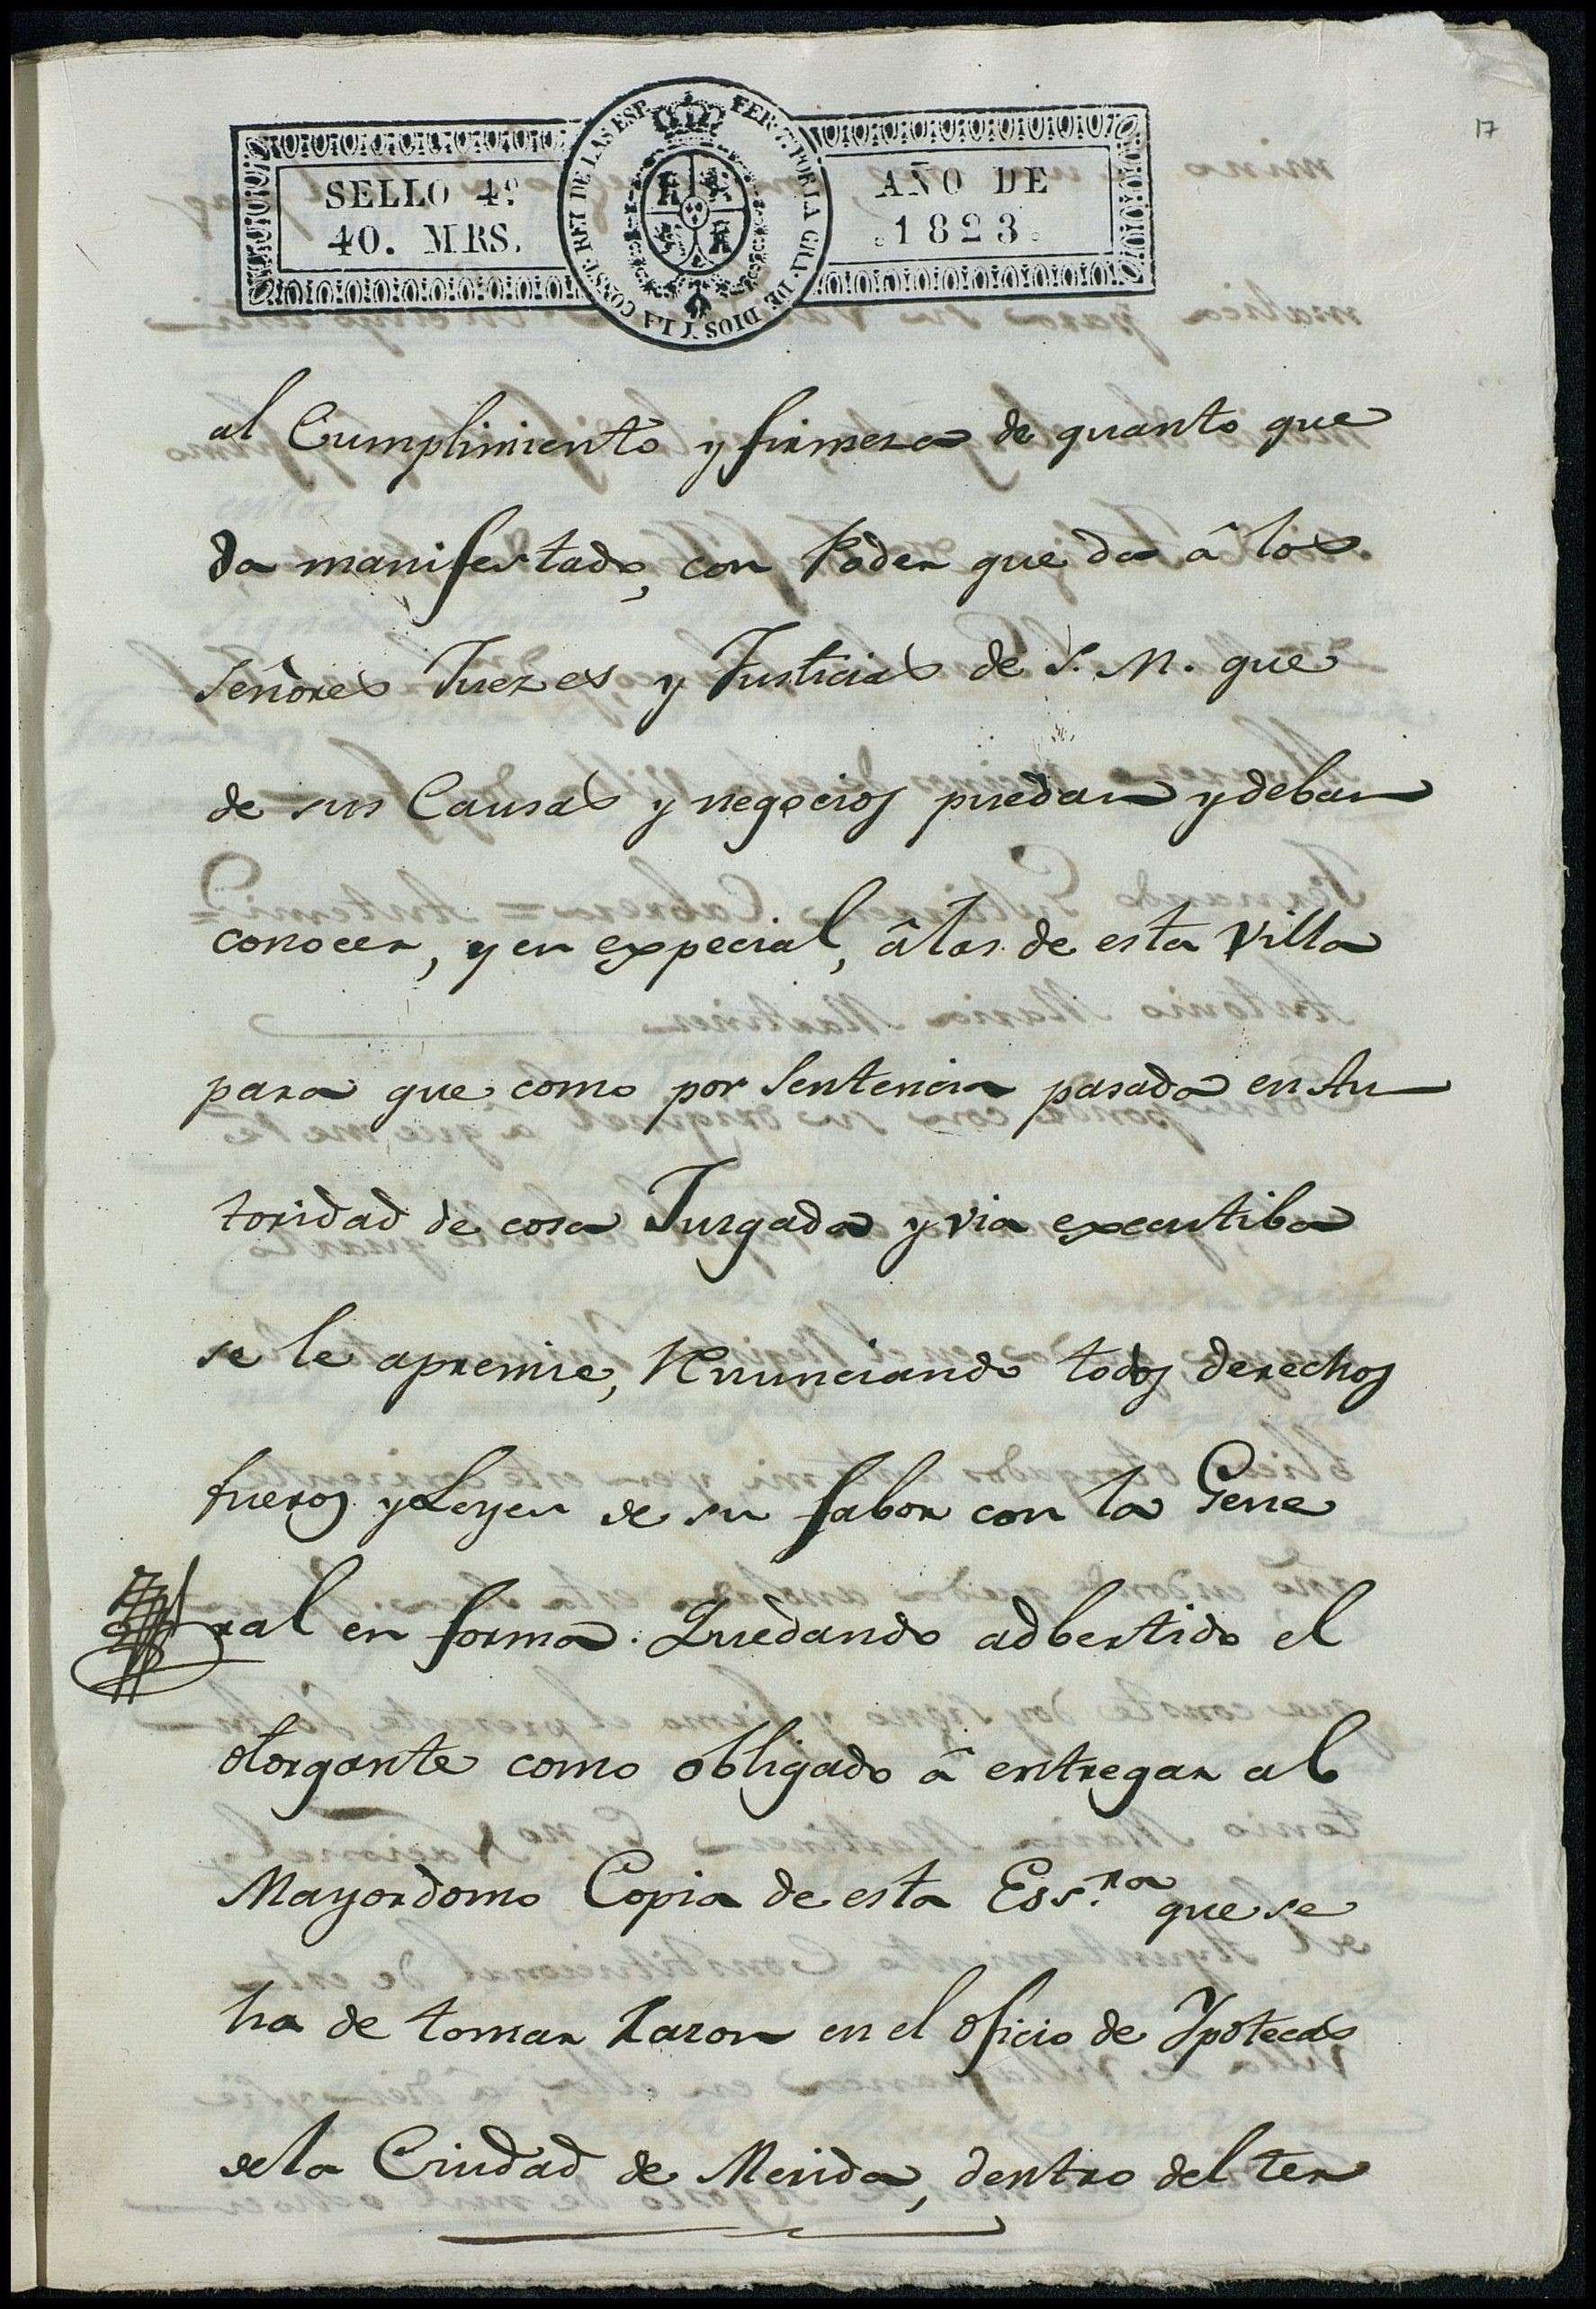 17
SELLO 4º
40. MRS.
FER. 7. POR LA G. DE DIOS Y LA CONST. REY DE LAS ESP.
AÑO DE
1823.
al Cumplimiento y firmeza de quanto que
da manifestado, con Poder que da â los
Señores Juezes, y Justicias de S. M. que
de sus Causas y negocios puedan y deban
conocer, y en expecial, â las de esta Villa
para que como por Sentencia pasada en Au
toridad de cosa Juzgada y via executiba
se le apremie, Renunciando todos derechos
fueros y Leyes de su fabor con la Gene
ral en forma. Quedando adbertido el
otorgante como obligado â entregar al
Mayordomo Copia de esta Ess.ra que se
ha de tomar Razon en el oficio de Ypotecas
de la Ciudad de Merida, dentro del ter